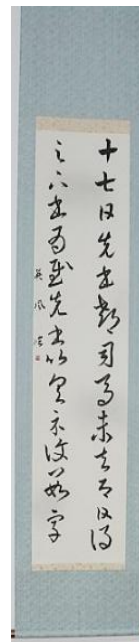 十七日先書郗司馬未去即日得
足下書為慰先書以具示復數字
英風書